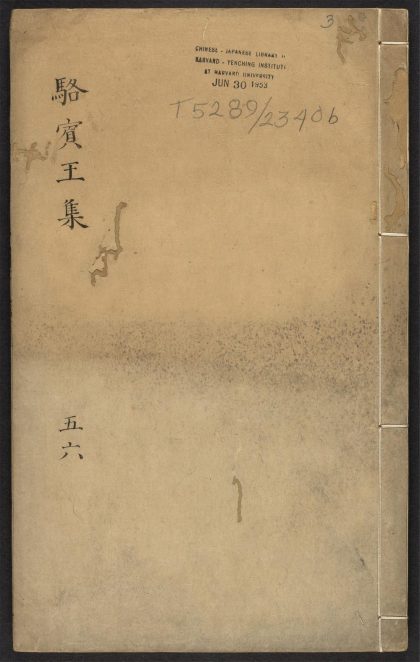 3
CHINESE - JAPANESE LIBRARY
HARVARD - YENCHING INSTITUTE
AT HARVARD UNIVERSITY
JUN 30 1953
T5289/2340b
駱賓王集
五六